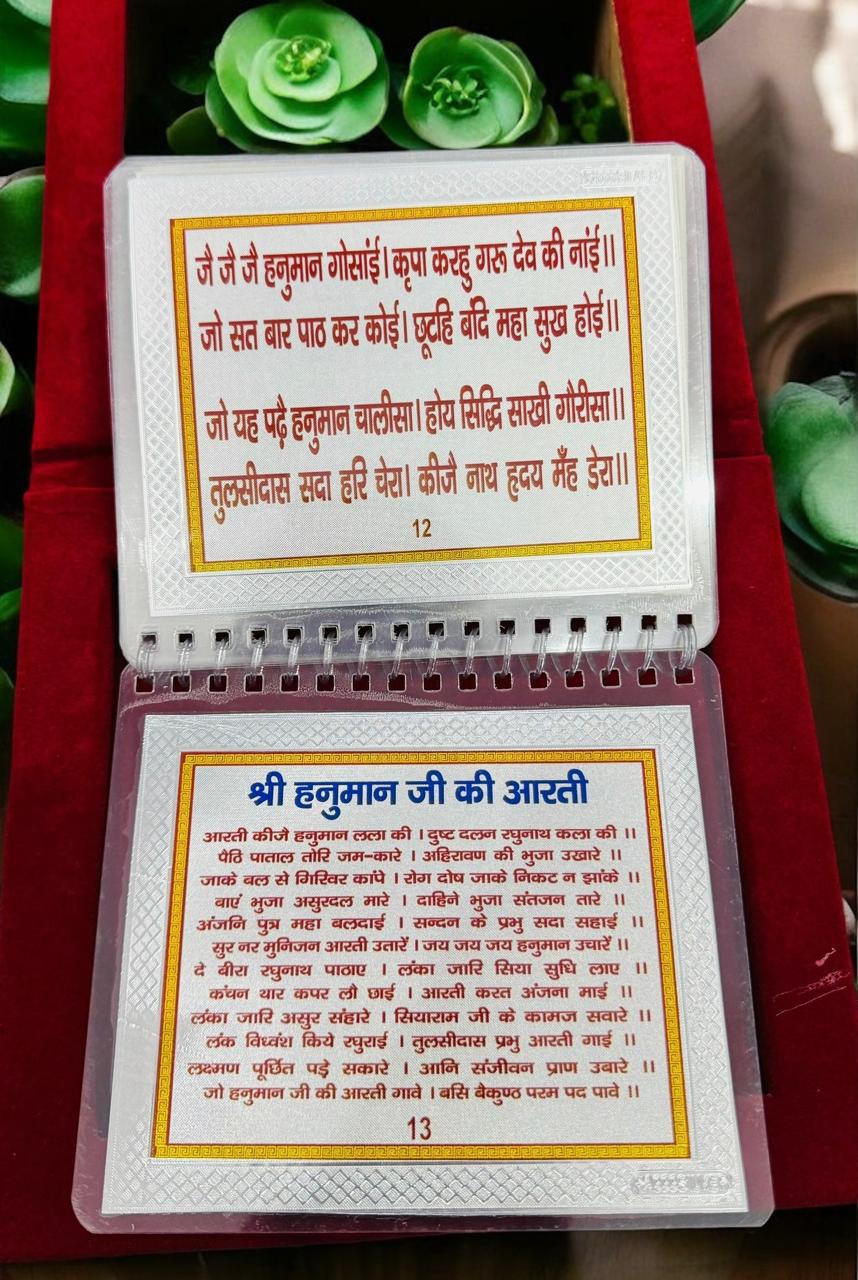 जै जै जै हनुमान गोसांई। कृपा करहु गरू देव की नांई।।
जो सत बार पाठ कर कोई। छूटहि बंदि महा सुख होई।।
जो यह पढ़ै हनुमान चालीसा। होय सिद्धि साखी गौरीसा।।
तुलसीदास सदा हरि चेरा। कीजै नाथ हृदय मँह डेरा।।
12
श्री हनुमान जी की आरती
आरती कीजै हनुमान लला की । दुष्ट दलन रघुनाथ कला की ।।
पैठि पाताल तोरि जम-कारे । अहिरावण की भुजा उखारे ।।
जाके बल से गिरिवर कांपे । रोग दोष जाके निकट न झांके ।।
बाएं भुजा असुरदल मारे । दाहिने भुजा संतजन तारे ।।
अंजनि पुत्र महा बलदाई । सन्दन के प्रभु सदा सहाई ।।
सुर नर मुनिजन आरती उतारें । जय जय जय हनुमान उचारें ।।
दे बीरा रघुनाथ पाठाए । लंका जारि सिया सुधि लाए ।।
कंचन थार कपर लौ छाई । आरती करत अंजना माई ।।
लंका जारि असुर संहारे । सियाराम जी के कामज सवारे ।।
लंक विध्वंश किये रघुराई । तुलसीदास प्रभु आरती गाई ।।
लक्ष्मण पूर्छित पड़े सकारे । आनि संजीवन प्राण उबारे ।।
जो हनुमान जी की आरती गावे । बसि बैकुण्ठ परम पद पावे ।।
13